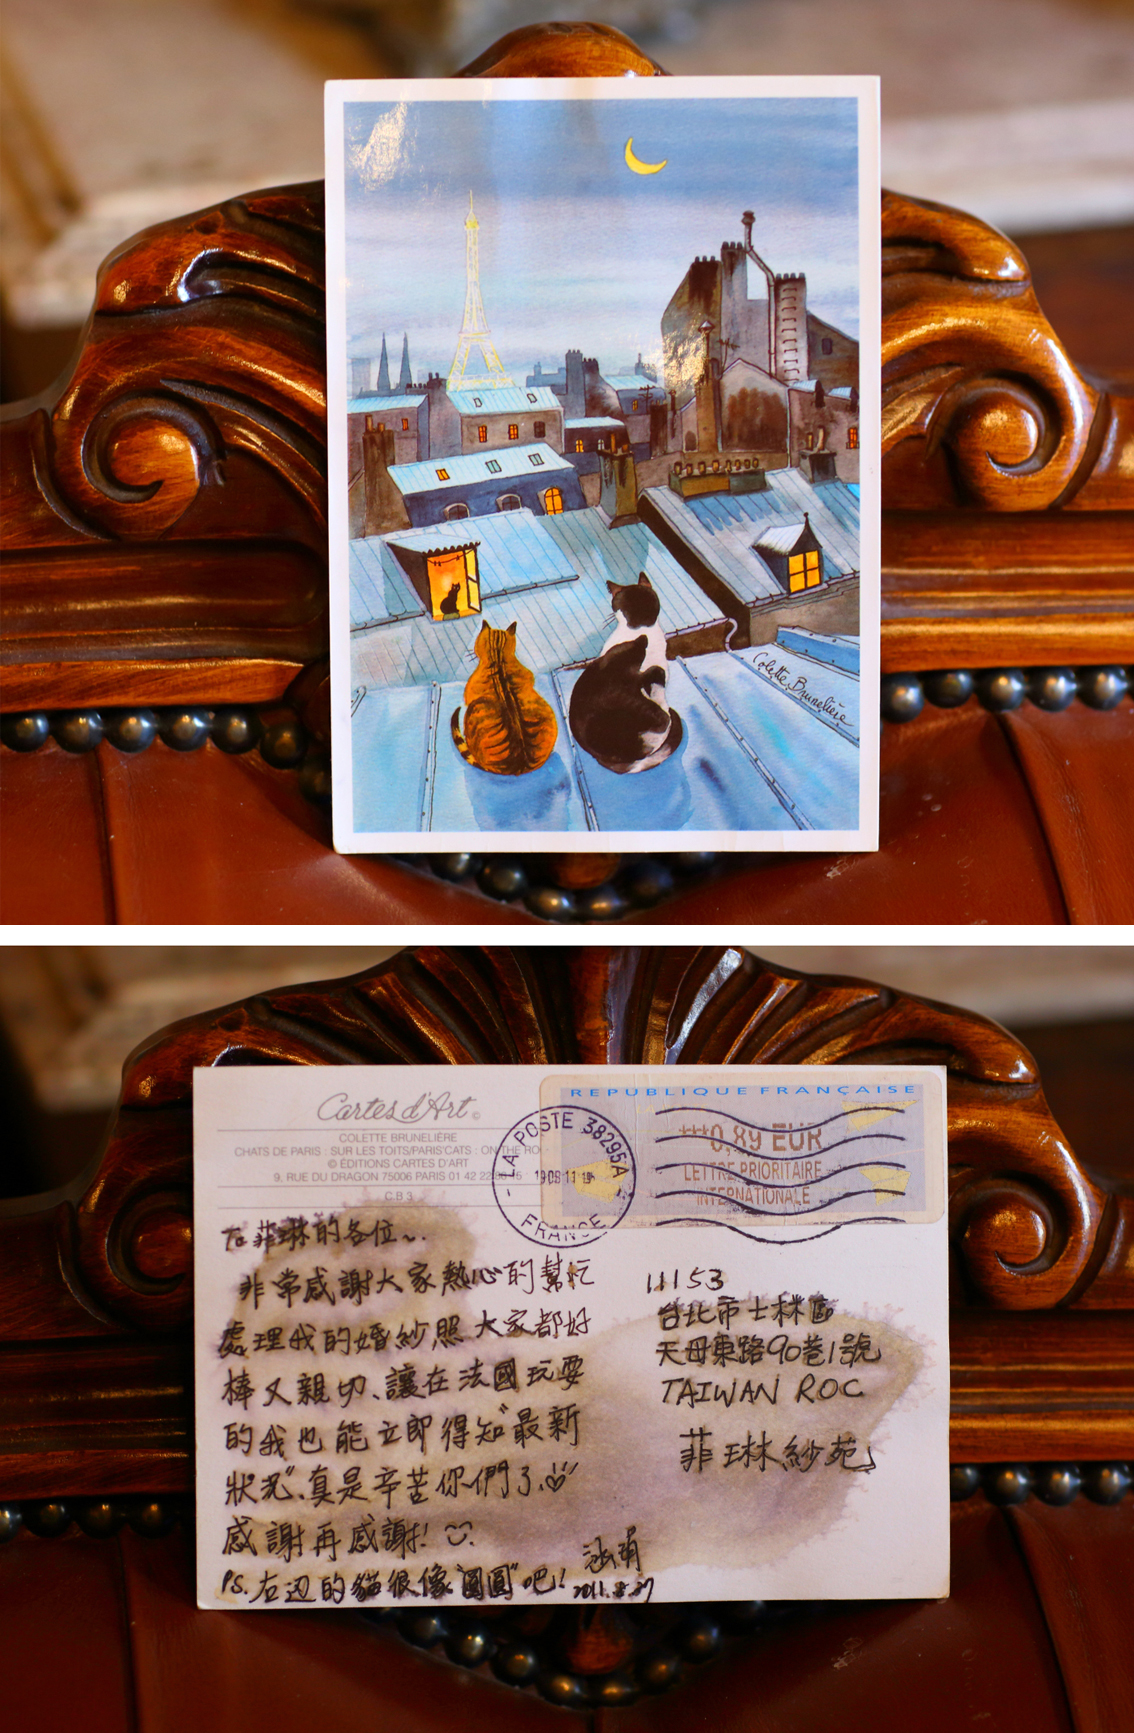 Colette Brunelière
Cartes d'Art©
COLETTE BRUNELIÈRE
CHATS DE PARIS : SUR LES TOITS/PARIS'CATS : ON THE RO
© ÉDITIONS CARTES D'ART
9, RUE DU DRAGON 75006 PARIS 01 42 22
C.B 3
REPUBLIQUE FRANÇAISE
***0,89 EUR
LETTRE PRIORITAIRE
INTERNATIONALE
LA POSTE 38295A
FRANCE
To 菲琳的各位~.
非常感謝大家熱心的幫忙
處理我的婚紗照 大家都好
棒又親切、讓在法國玩耍
的我也能立即得知"最新
狀況"、真是辛苦你們了、
感謝再感謝!
PS. 右边的貓很像"圓圓"吧!
2011.8.27
11153
台北市士林區
天母東路90巷1號
TAIWAN ROC
菲琳紗苑